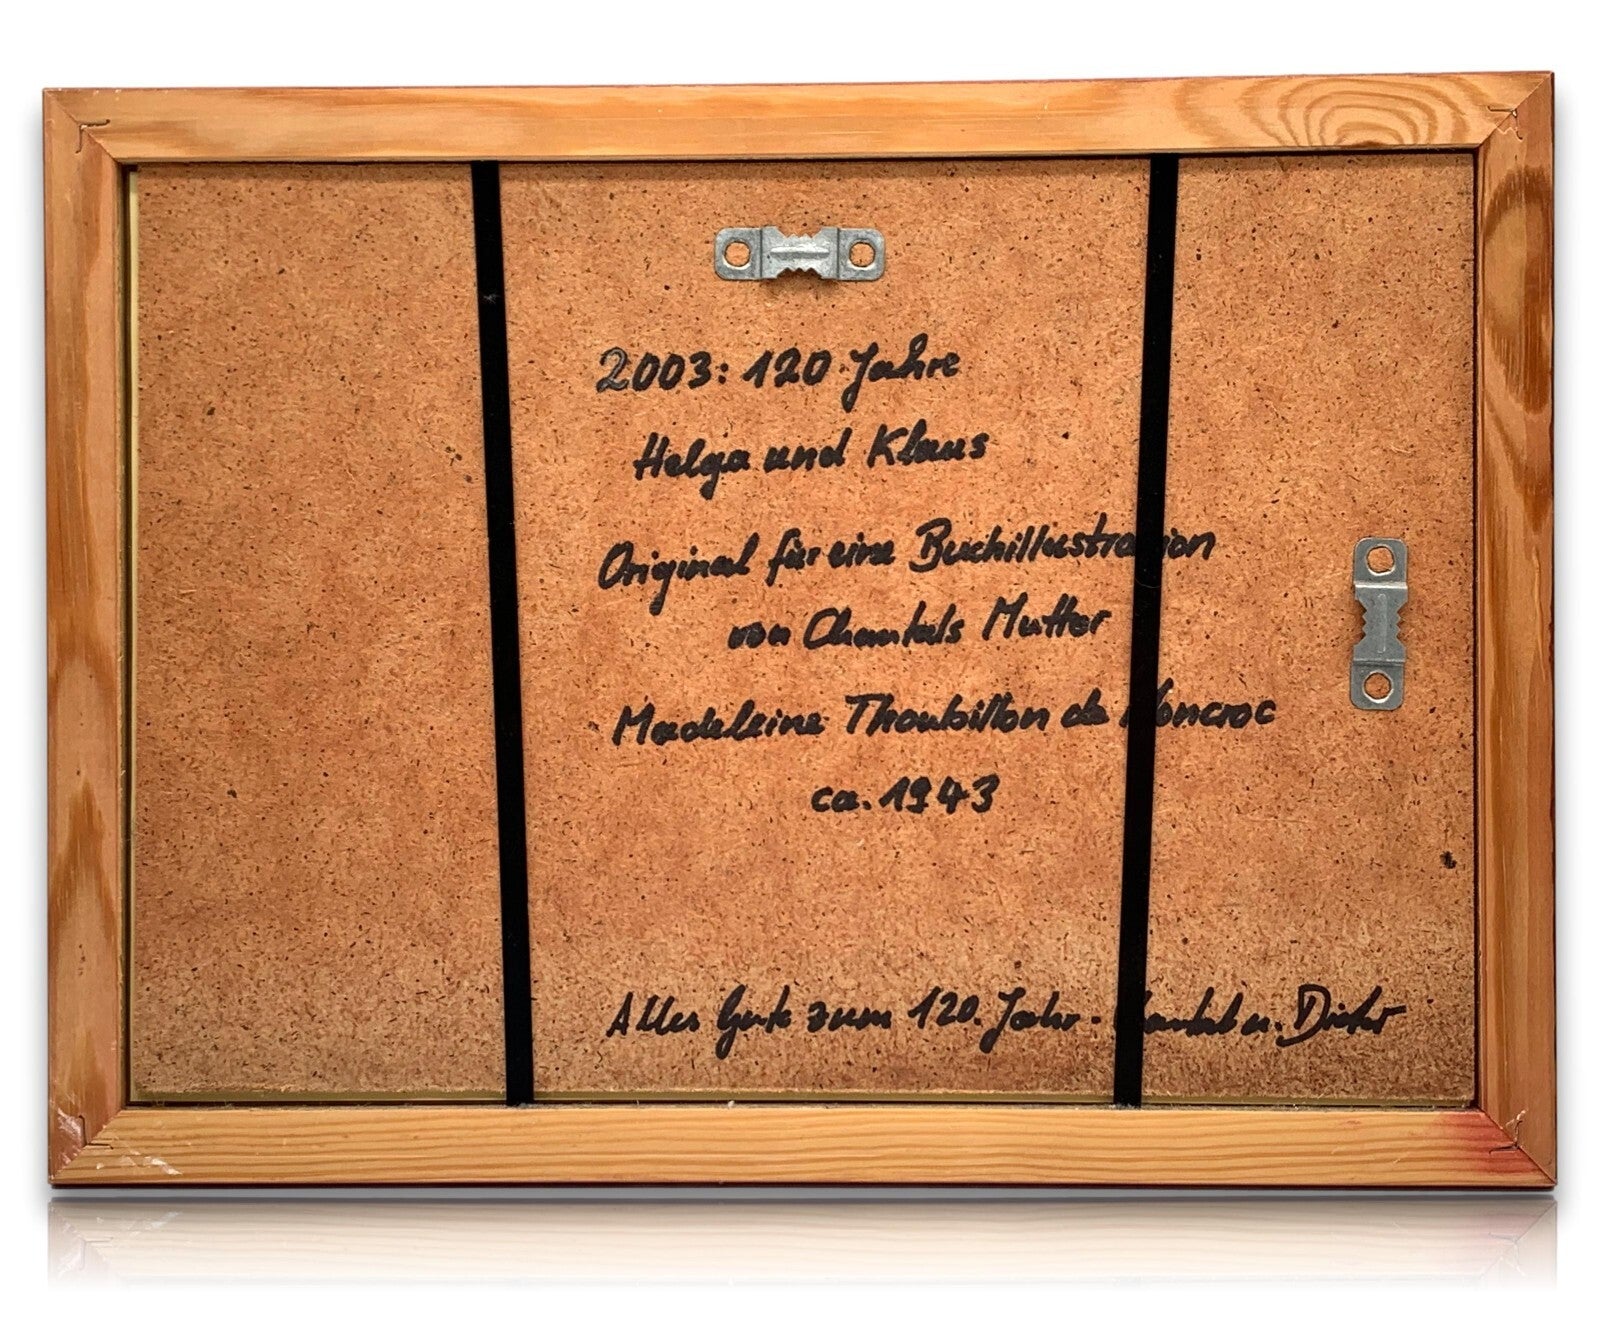 2003: 120 Jahre
Helga und Klaus
Original für eine Buchillustration
von Chantals Mutter
Madeleine Thoubillon de Moncroc
ca. 1943
Alles Gute zum 120. Jahr. Chantal u. Dieter